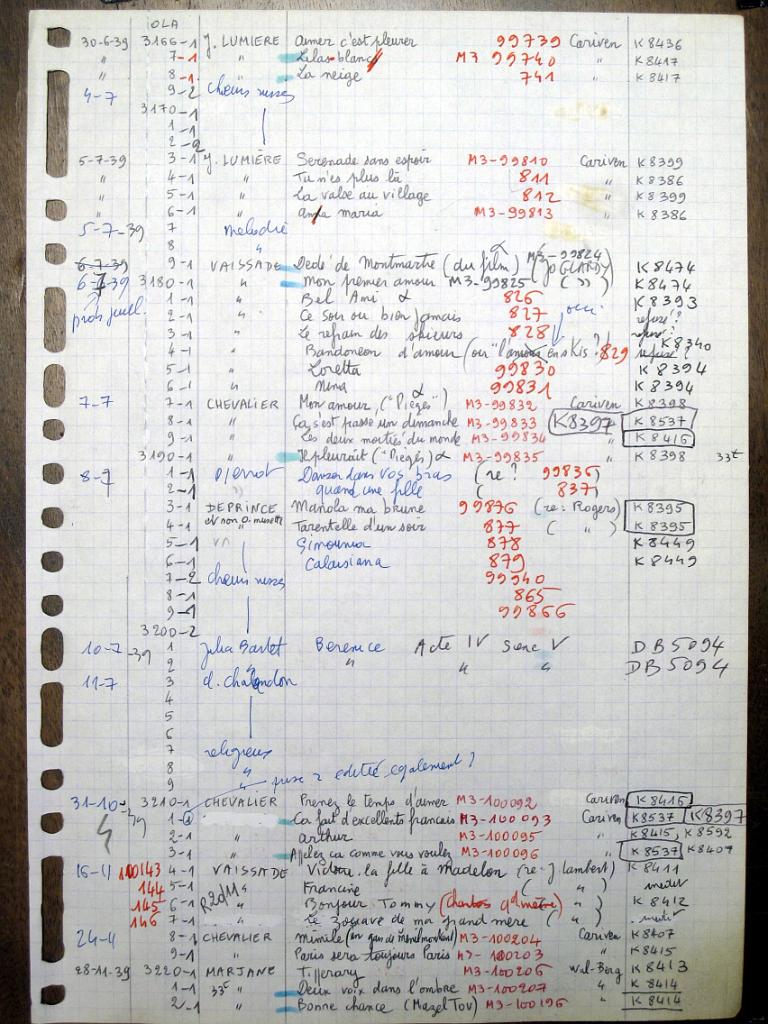 OLA
30-6-39 3166-1 J. LUMIERE Aimer c'est pleurer 99739 Cariven K 8436
" 7-1 " Lilas-blanc M3 99740 " K 8417
" 8-1 " La neige 741 " K 8417
4-7 9-2 Chœurs russes
3170-1
1-1
2-2
5-7-39 3-1 J. LUMIÈRE Serenade sans espoir M3-99810 Cariven K 8399
" 4-1 " Tu n'es plus là 811 " K 8386
" 5-1 " La valse au village 812 " K 8399
" 6-1 " Anna maria M3-99813 " K 8386
5-7-39 7 melodie
8 "
6-7-39 9-1 VAISSADE Dédé de Montmartre (du film) α M3-99824 (JO GLARDY) K 8474
6-7-39 3180-1 " mon premier amour M3-99825 ( " ) K 8474
1-1 " Bel Ami α 826 K 8393
2-1 " Ce soir ou bien jamais 827 oui refusé?
3-1 " Le refrain des skieurs 828 refusé?
4-1 " Bandoneon d'amour (ou "l'amour en skis"?) 829 refusé? K 8340
5-1 " Loretta 99830 K 8394
6-1 " Nina 99831 K 8394
7-7 7-1 CHEVALIER Mon amour, ("Pièges") α M3-99832 Cariven K 8398
8-1 " Ça s'est passé un dimanche M3-99833 K8397 " K 8537
9-1 " Les deux moitiés du monde M3-99834 K 8416
3190-1 " Il pleurait ("Pièges) α M3-99835 " K 8398 33t
8-7 1-1 Pierrot Danser dans vos bras (re? 99836)
2-1 " quand une fille ( 837)
3-1 DEPRINCE Manola ma brune 99876 (re: Rogers) K 8395
4-1 et non O. musette Tarentelle d'un soir 877 ( " ) K 8395
5-1 Simounia 878 K 8449
6-1 Calaisiana 879 K 8449
7-2 chœurs russes 99940
8-1 865
9-1 99866
3200-2
10-7-39 1 Julia Bartet Berenice Acte IV Scene V DB5094
2 " " " " DB5094
11-7 3 d. chalandon
4
5
6
7 religieux
8 "
9 " prise 2 éditée également?
31-10-39 3210-1 CHEVALIER Prenez le temps d'aimer M3-100092 Cariven K 8415
1-1 Ca fait d'excellents français M3-100093 Cariven K8537 K8397
2-1 " Arthur M3-100095 " K8415, K 8592
3-1 " Appelez ça comme vous voulez M3-100096 " K 8537 K8407
16-11 100143 4-1 VAISSADE Victoire la fille à Madelon (re: J. Lambert) K 8411
144 5-1 Francine ( " ) inédit
145 6-1 " Bonjour Tommy ( " ) K 8412
146 7-1 " Le zouave de ma grand mère ( " ) inédit
24-4 8-1 CHEVALIER Mimile (un gars de Ménilmontant) M3-100204 Cariven K 8407
9-1 " Paris sera toujours Paris M3-100203 " K 8415
28-11-39 3220-1 MARJANE Tipperary M3-100206 Wal-Berg K 8413
1-1 33t " Deux voix dans l'ombre M3-100207 " K 8414
2-1 " Bonne chance (Mazel Tov) M3-100196 " K 8414